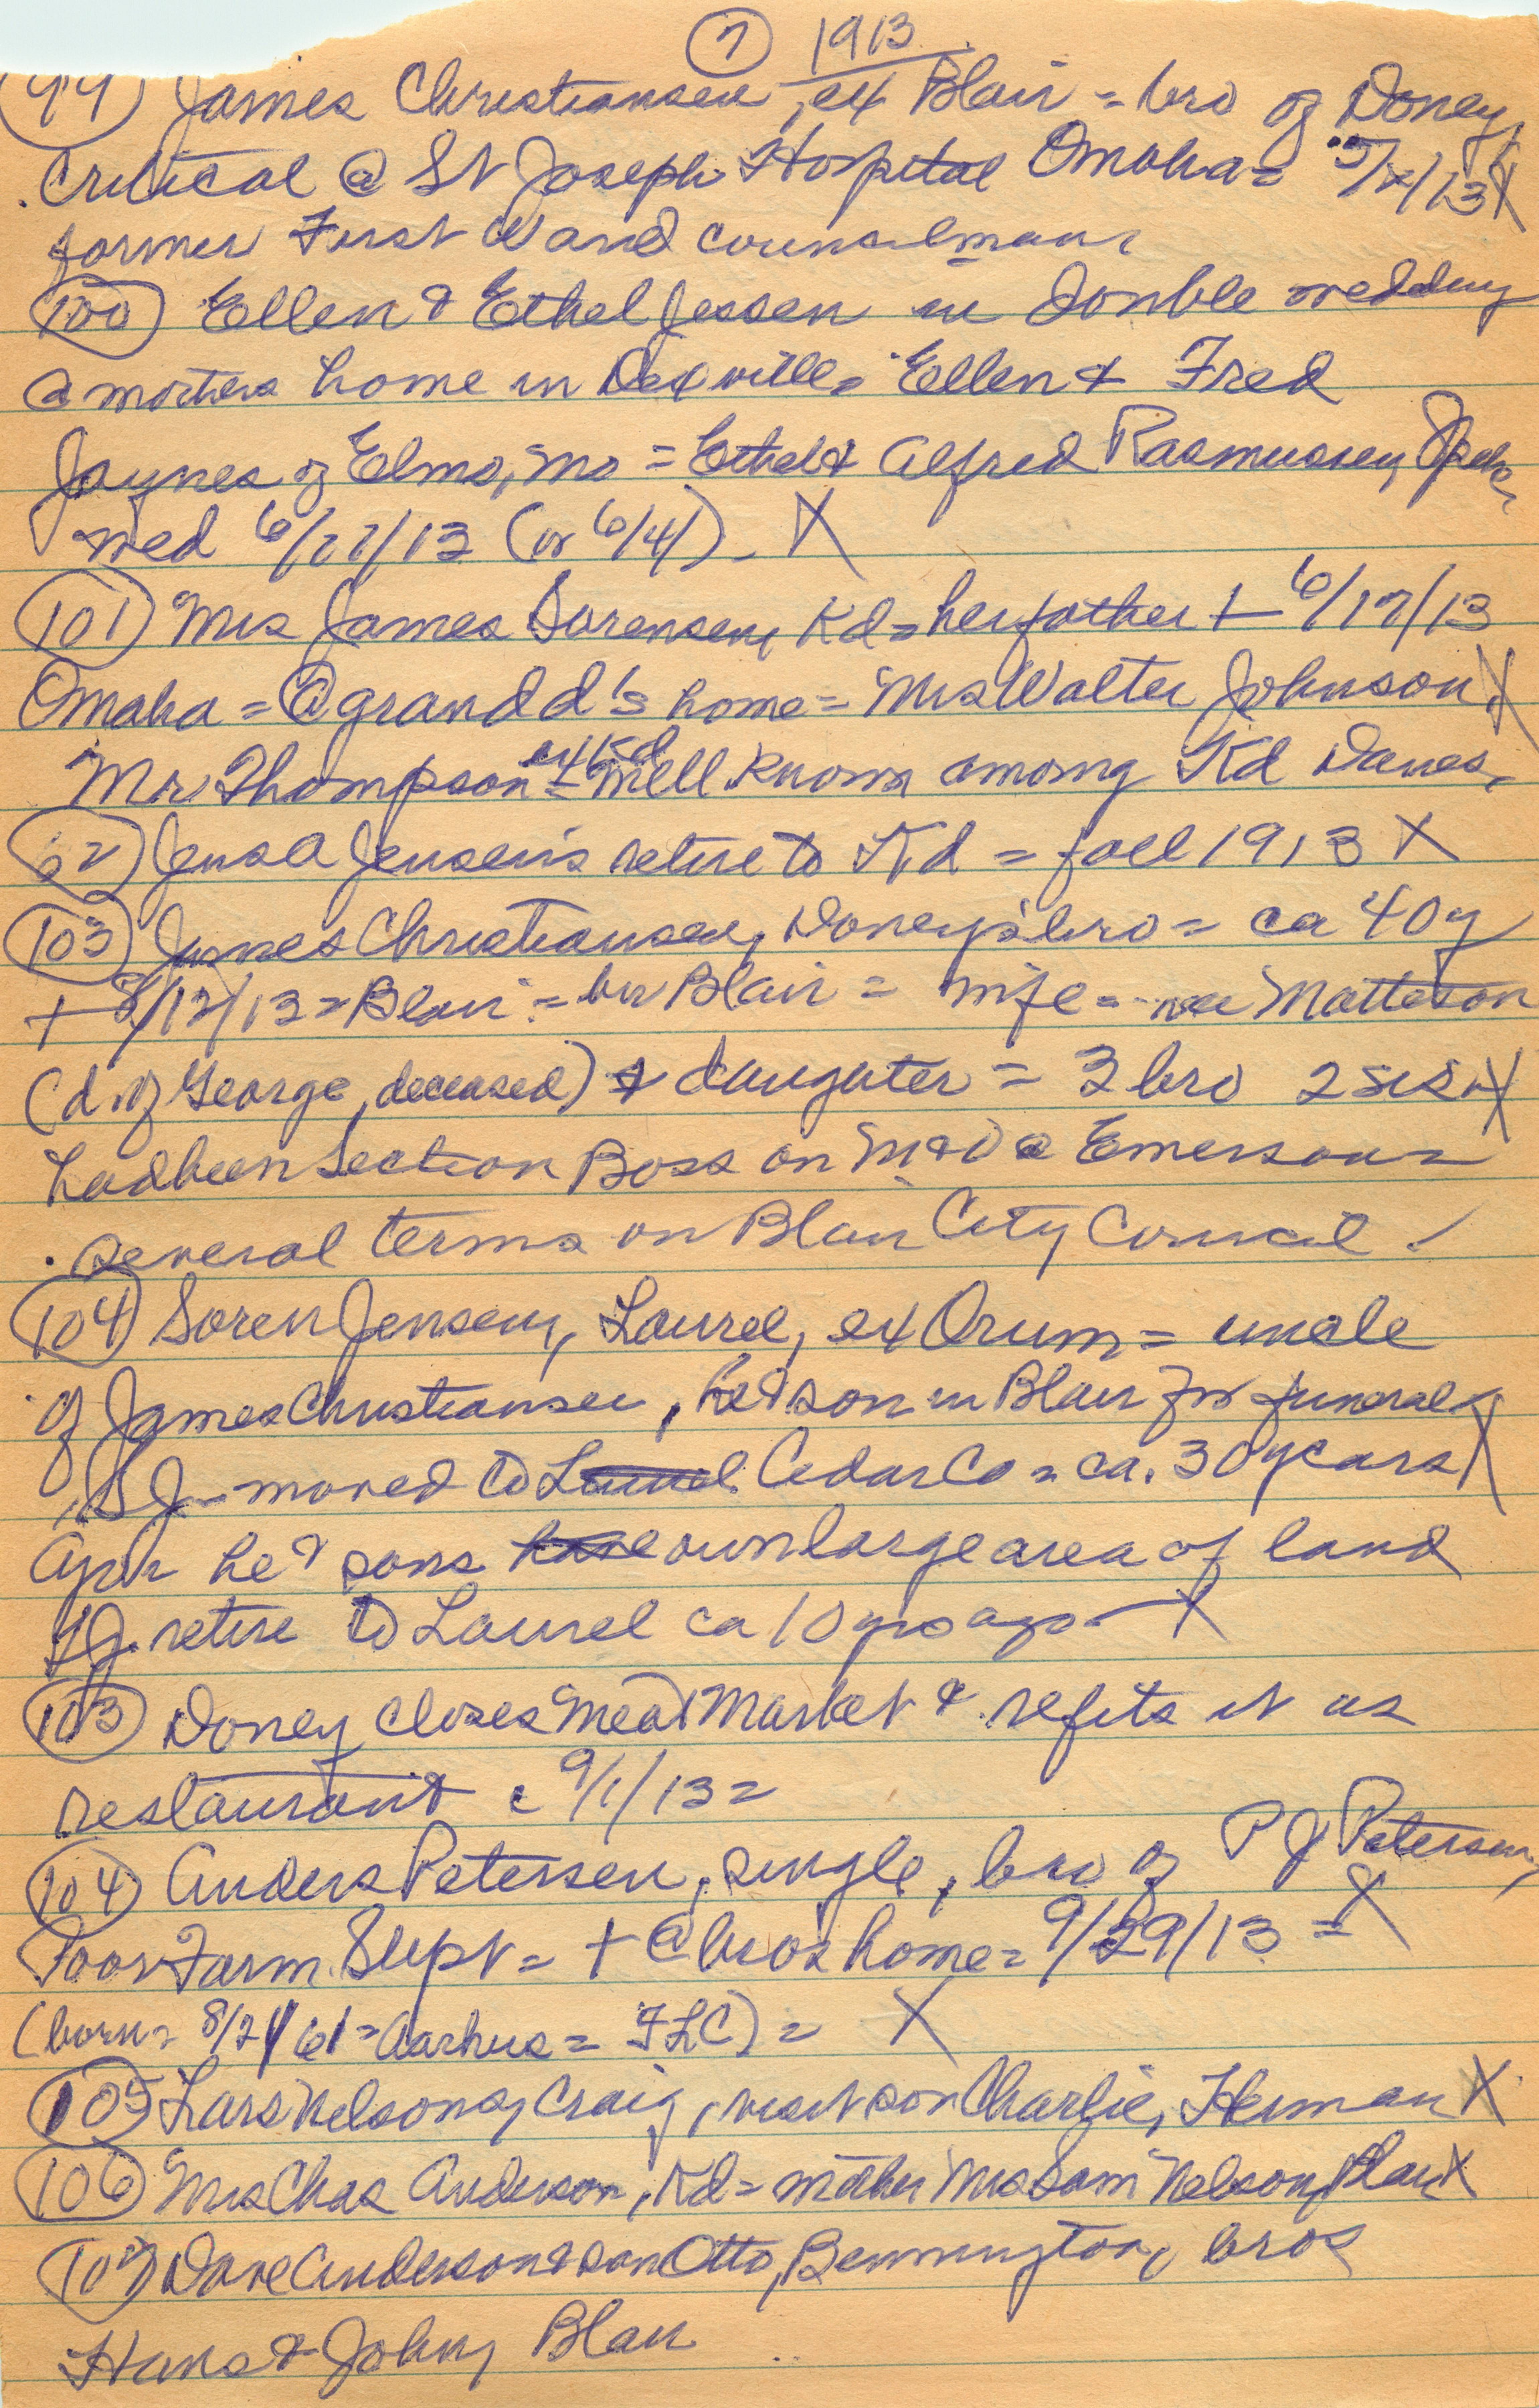 7 1913
99 James Christiansen, ex Blair = bro of Doney,
Critical @ St Joseph Hospital Omaha = 5/x/13 X
former First Ward councilman,
100 Ellen & Ethel Jessen in double wedding
@ mothers home in = Ellen & Fred
Jaynes of Elmo, Mo = Ethel & Alfred Rasmussen,
wed 6/27/13 (or 6/4) - X
101 Mrs James Sorensen, Kd = her father + 6/17/13
Omaha = @ grand d's home = Mrs Walter Johnson X
Mr Thompson ex Kd = well known among Kd Danes,
02 Jens A Jensens retire to Kd = fall 1913 X
103 James Christiansen, Doney's bro = ca 40y
+ 8/12/13 = Blair = bur Blair = wife = nee Matteson
(d. of George, deceased) & daughter = 3 bro 2 sis X
had been Section Boss on M & O @ Emerson =
several terms on Blair City Council.
104 Soren Jensen, Laurel, ex Orum = uncle
of James Christiansen, he & son in Blair for funeral
SJ - moved to Laurel Cedar Co = ca. 30 years X
ago he & sons have own large area of land
SJ. retire to Laurel ca 10 yrs ago - X
103 Doney closes Meat Market & refits it as
restaurant c 9/1/13 =
104 Anders Petersen, single, bro of P J Petersen,
Poor Farm Supt = + @ bro's home = 9/29/13 = X
(born = 8/24/61 = Aarhus = FLC) = X
105 Lars Nelsons, Craig, visit son Charlie, Herman X
106 Mrs Chas Anderson, Kd = mother Mrs Sam Nelson, Blair X
107 Dave Anderson & son Otto, Bennington, bros
Hans & John, Blair